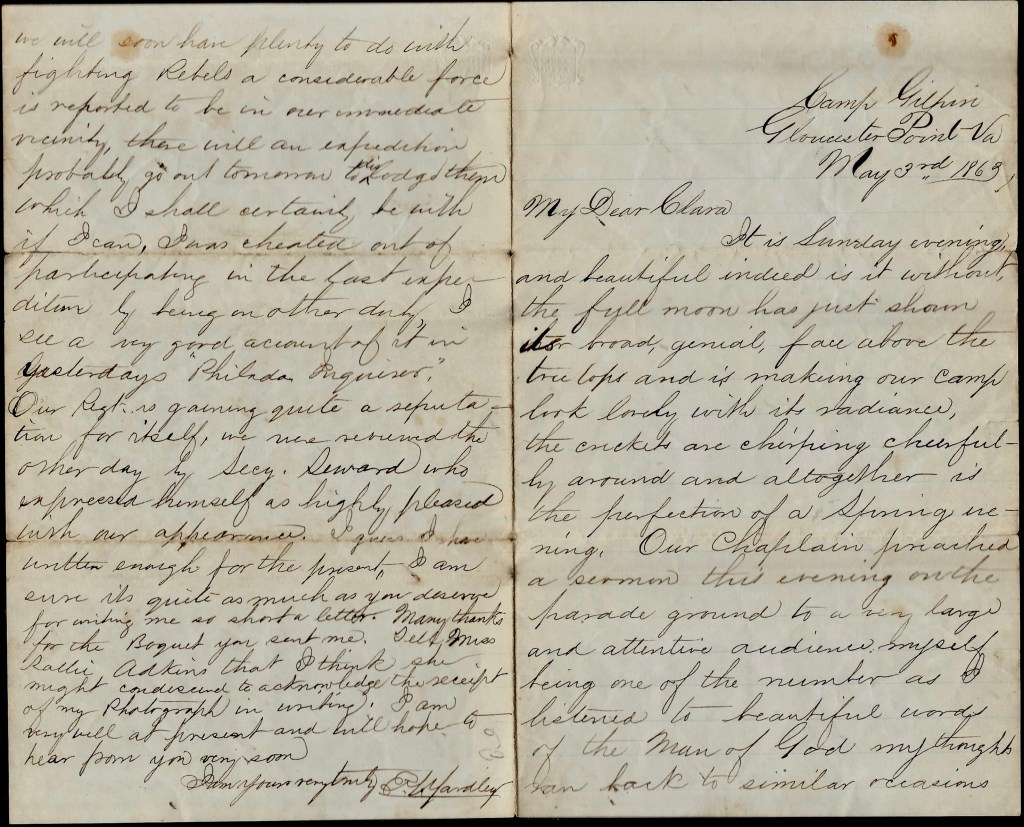 Camp Gilpin
Gloucester Point Va
May 3rd 1863
My Dear Clara
It is Sunday evening,
and beautiful indeed is it without,
the full moon has just shown
broad, genial, face above the
tree tops and is making our camp
look lovely with its radiance,
the crickets are chirping cheerful-
ly around and altogether is
the perfection of a Spring eve-
ning. Our Chaplain preached
a sermon this evening on the
parade ground to a very large
and attentive audience. myself
being one of the number as I
listened to beautiful words
of the Man of God my thoughts
ran back to similar occasions
we will soon have plenty to do with
fighting Rebels a considerable force
is reported to be in our immediate
vicinity, there will an expedition
probably go out tomorrow to dislodge them
which I shall certainly be with
if I can, I was cheated out of
participating in the last expe-
dition by being on other duty, I
see a very good account of it in
Yesterdays "Philada Inquirer".
Our Regt. is gaining quite a reputa-
tion for itself, we were reviewed the
other day by Secy. Seward who
expressed himself as highly pleased
with our appearance. I guess I have
written enough for the present, I am
sure its quite as much as you deserve
for writing me so short a letter. Many thanks
for the Boquet you sent me. Tell Miss
Sallie Adkins that I think she
might condiscend to acknowledge the receipt
of my Photograph in writing. I am
very well at present and will hope to
hear from you very soon
I am yours very truly Yardley